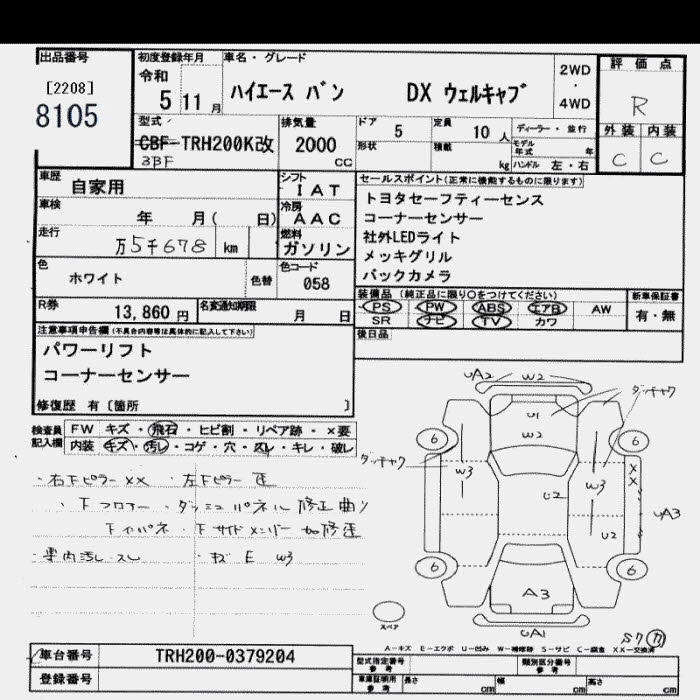 出品番号
[2208]
8105
初度登録年月
令和
5 11 月
車名・グレード
ハイエース バン DX ウェルキャブ
2WD
・
4WD
評価点
R
外装 内装
C C
型式
CBF-TRH200K改
3BF
排気量
2000
CC
ドア 5
定員 10 人
形状
積載 kg
ディーラー・並行
モデル年式 年
ハンドル 左・右
車歴
自家用
シフト
IAT
車検
年 月( 日)
冷房
AAC
走行
万5千678 km
燃料
ガソリン
色
ホワイト
色替
色コード
058
R券
13,860 円
名変通知期限
月 日
セールスポイント(正常に機能するものに限ります)
トヨタセーフティーセンス
コーナーセンサー
社外LEDライト
メッキグリル
バックカメラ
装備品 (純正品に限り○をつけてください)
PS PW ABS エアB AW
SR ナビ TV カワ
新車保証書
有・無
後日品
注意事項申告欄(不具合内容等は具体的に記入して下さい)
パワーリフト
コーナーセンサー
修復歴 有〔箇所 〕
検査員
記入欄
FW キズ・飛石・ヒビ割・リペア跡・×要
内装 キズ・汚レ・コゲ・穴・スレ・キレ・破レ
・右下ピラー ××・左下ピラー
・下フロアー・ダッシュパネル 修正 曲り
下インパネ・下サイドメンバー
・車内汚レ・スレ ・キズ E W3
UA2 W2
ダッチャク
U1
W2
6 6
ダッチャク
W3
W3
××
U2
UA3
U2
6 6
A3
UA1
スペア
A-キズ E-エクボ U-凹み W-補修跡 S-サビ C-腐食 XX-交換済
車台番号
TRH200-0379204
登録番号
型式指定番号
参考
類別区分番号
参考
車庫証明用
参考
長さ cm
幅 cm
高さ cm